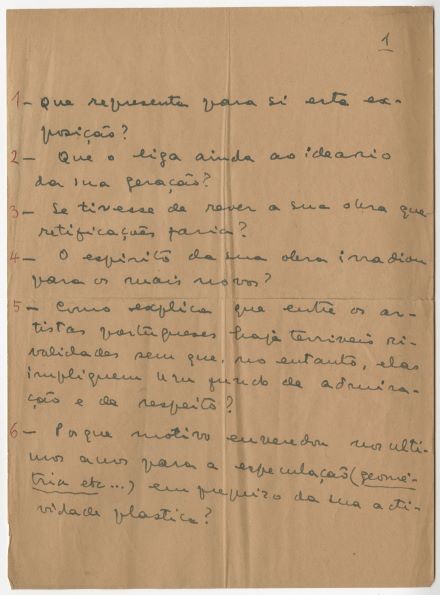 1
1- Que representa para si esta ex-
posição?
2- Que o liga ainda ao ideario
da sua geração?
3- Se tivesse de rever a sua obra que
retificações faria?
4- O espirito da sua obra irradiou
para os mais novos?
5- Como explica que entre os ar-
tistas portugueses haja terriveis ri-
validades sem que, no entanto, elas
impliquem um fundo de admira-
ção e de respeito?
6- Porque motivo enveredou nos ulti-
mos anos para a especulação (geomé-
tria etc...) em prejuizo da sua acti-
vidade plastica?